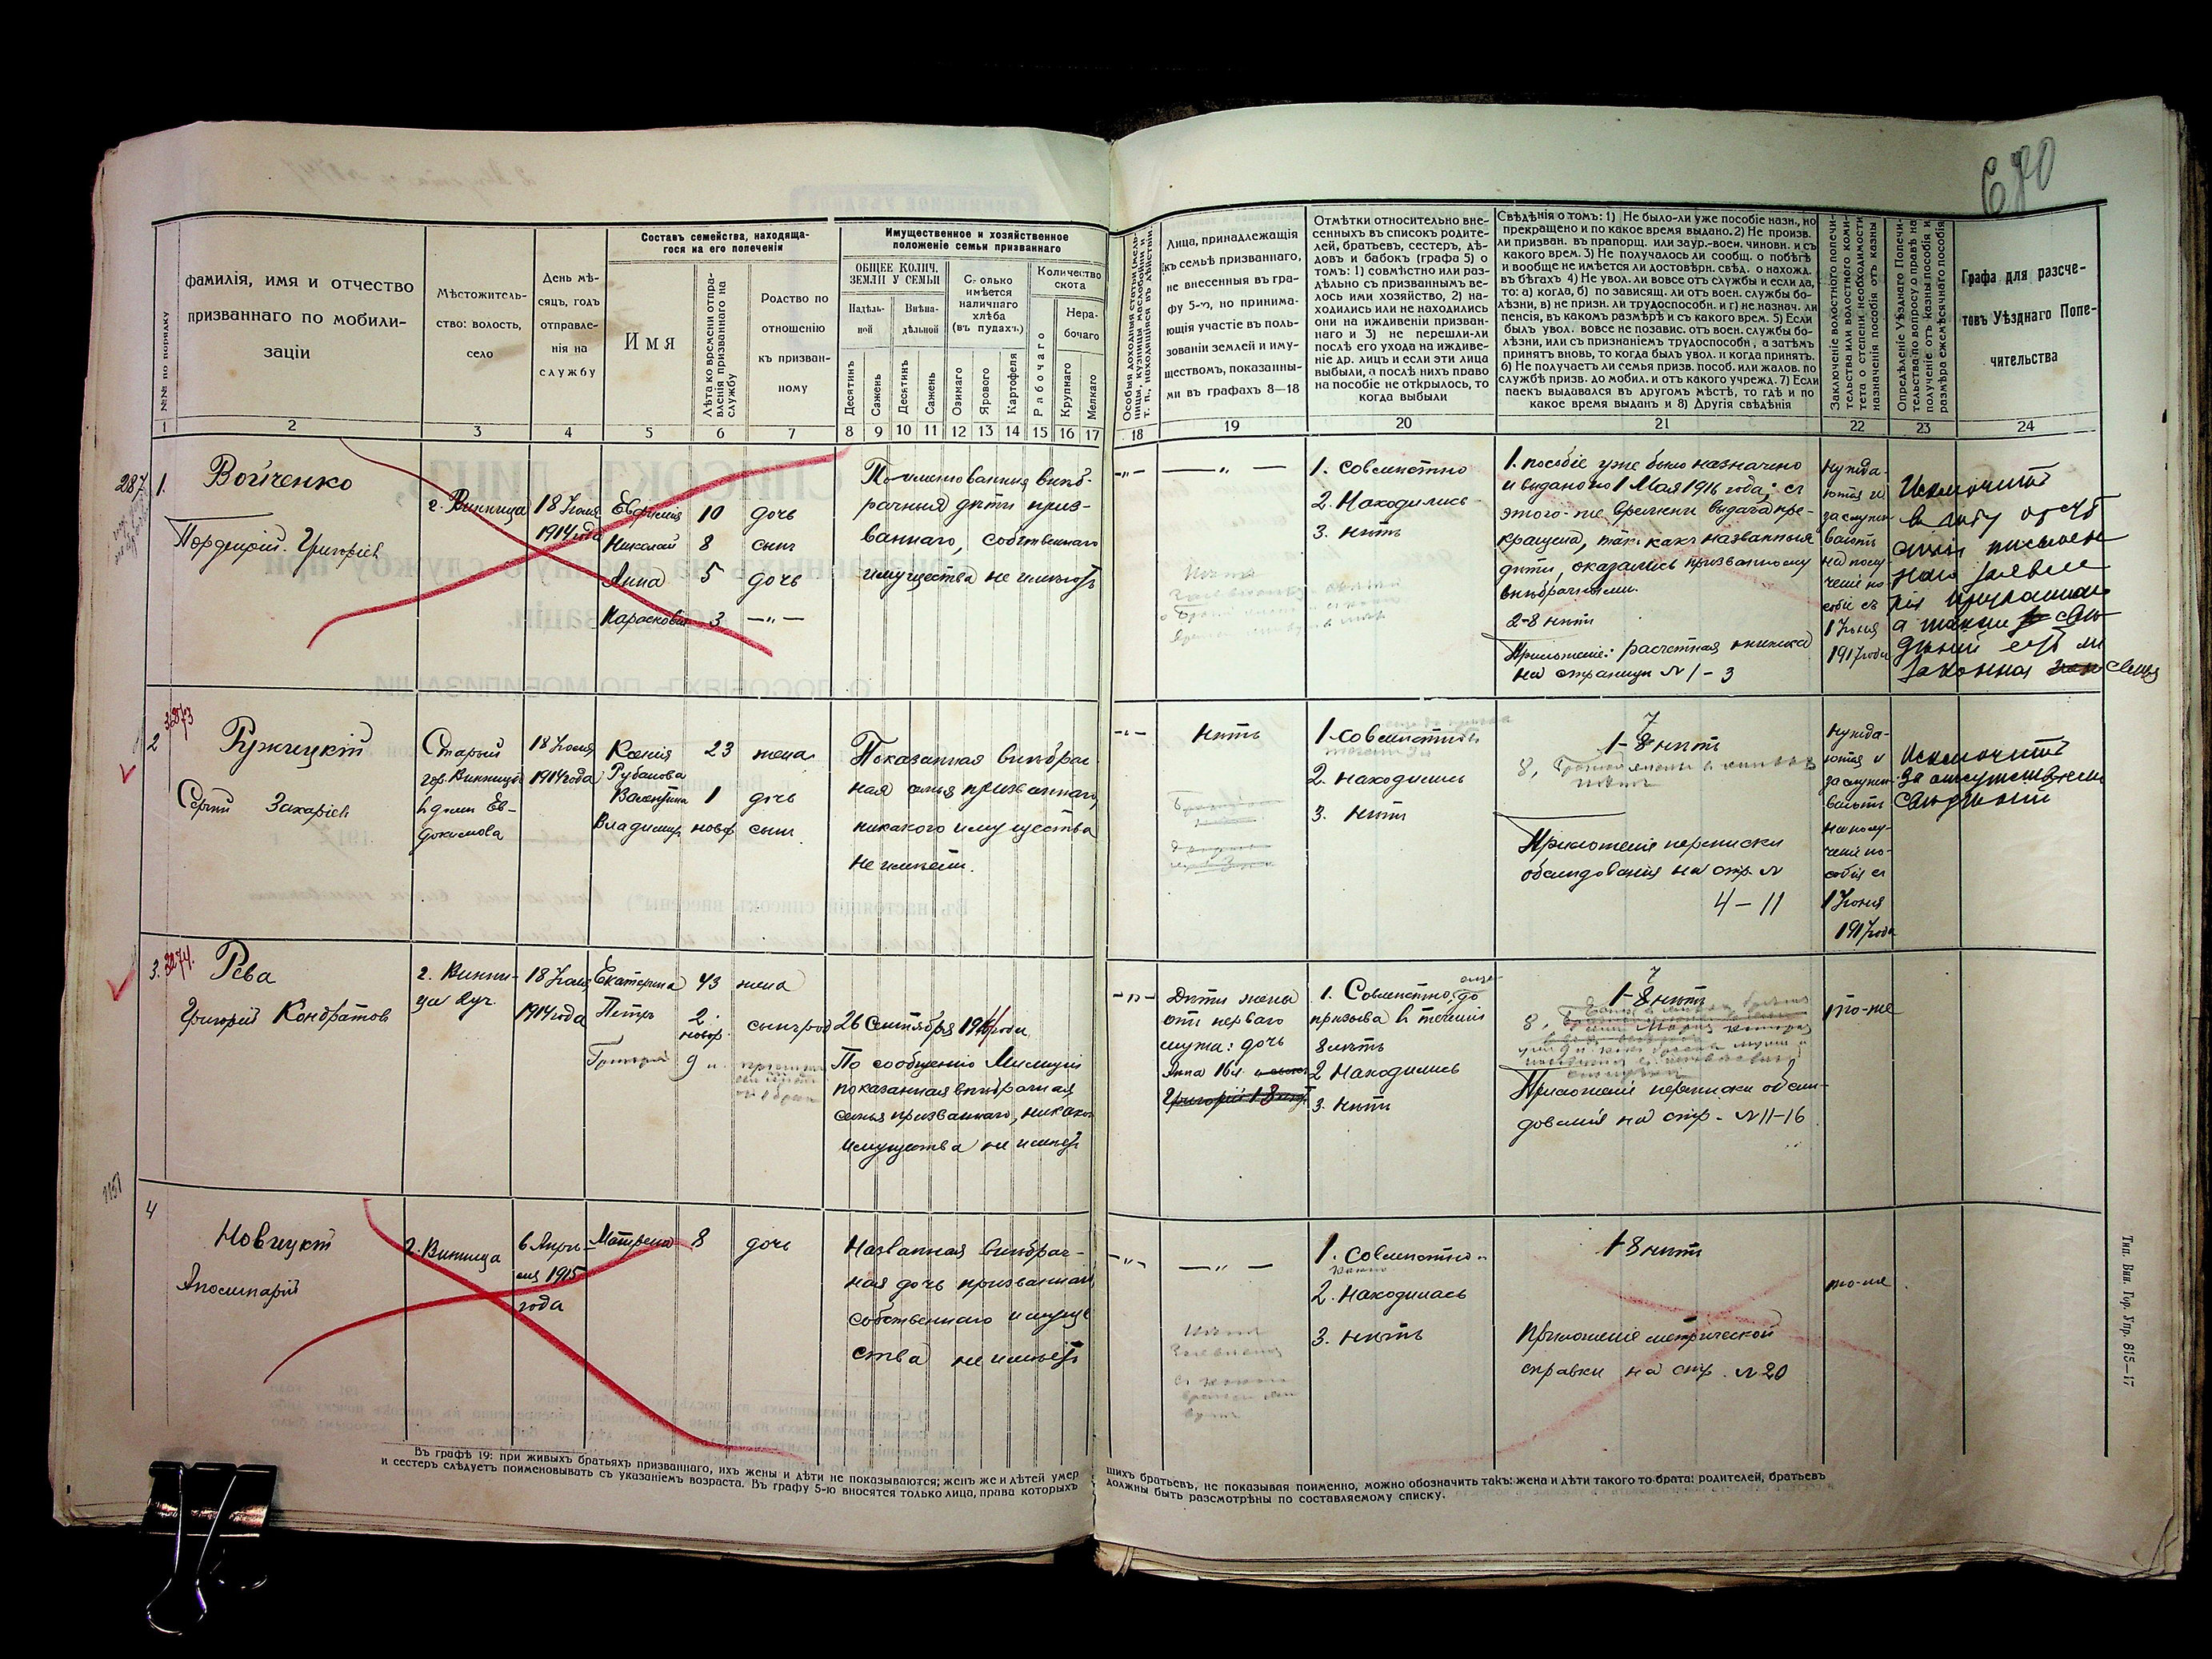 680
№№ по порядку
фамилія, имя и отчество
призваннаго по мобили-
заціи
Мѣстожитель-
ство: волость,
село
День мѣ-
сяцъ, годъ
отправле-
нія на
службу
Составъ семейства, находяща-
гося на его попеченіи
Имя
Лѣта ко времени отпра-
вленія призваннаго на
службу
Родство по
отношенію
къ призван-
ному
Имущественное и хозяйственное
положеніе семьи призваннаго
ОБЩЕЕ КОЛИЧ.
ЗЕМЛИ У СЕМЬИ
Надѣль-
ной
Внѣна-
дѣльной
Сколько
имѣется
наличнаго
хлѣба
(въ пудахъ)
Количество
скота
Нера-
бочаго
Десятинъ
Сажень
Десятинъ
Сажень
Озимаго
Ярового
Картофеля
Рабочаго
Крупнаго
Мелкаго
Особыя доходныя статьи (мель-
ницы, кузницы, маслобойни и
т. п., находящіяся въ дѣйствіи
Лица, принадлежащія
къ семьѣ призваннаго,
не внесенныя въ гра-
фу 5-ю, но принима-
ющія участіе въ поль-
зованіи землей и иму-
ществомъ, показанны-
ми въ графахъ 8—18
Отмѣтки относительно вне-
сенныхъ въ списокъ родите-
лей, братьевъ, сестеръ, дѣ-
довъ и бабокъ (графа 5) о
томъ: 1) совмѣстно или раз-
дѣльно съ призваннымъ ве-
лось ими хозяйство, 2) на-
ходились или не находились
они на иждивеніи призван-
наго и 3) не перешли-ли
послѣ его ухода на иждиве-
ніе др. лицъ и если эти лица
выбыли, а послѣ нихъ право
на пособіе не открылось, то
когда выбыли
Свѣдѣнія о томъ: 1) Не было-ли уже пособіе назн., но
прекращено и по какое время выдано. 2) Не произв.
ли призван. въ прапорщ. или заур.-воен. чиновн. и съ
какого врем. 3) Не получалось ли сообщ. о побѣгѣ
и вообще не имѣется ли достовѣрн. свѣд. о нахожд.
въ бѣгахъ 4) Не увол. ли вовсе отъ службы и если да,
то: а) когда, б) по зависящ. ли отъ воен. службы бо-
лѣзни, в) не призн. ли трудоспособн. и г) не назнач. ли
пенсія, въ какомъ размѣрѣ и съ какого врем. 5) Если
былъ увол. вовсе не позавис. отъ воен. службы бо-
лѣзни, или съ признаніемъ трудоспособн., а затѣмъ
принятъ вновь, то когда былъ увол. и когда принятъ.
6) Не получаетъ ли семья призв. пособ. или жалов. по
службѣ призв. до мобил. и отъ какого учрежд. 7) Если
паекъ выдавался въ другомъ мѣстѣ, то гдѣ и по
какое время выданъ и 8) Другія свѣдѣнія
Заключеніе волостного попечи-
тельства или волостного коми-
тета о степени необходимости
назначенія пособія отъ казны
Опредѣленіе Уѣзднаго Попечи-
тельства по вопросу о правѣ на
полученіе отъ казны пособія и
размѣра ежемѣсячнаго пособія
Графа для разсче-
товъ Уѣзднаго Попе-
чительства
1 2 3 4 5 6 7 8 9 10 11 12 13 14 15 16 17 18 19 20 21 22 23 24
287
1.
Войченко
Григоріев
г. Винница
18 Іюля
1914 года
Евфимія 10 дочь
Николай 8 сынъ
Анна 5 дочь
Парасковия 3 —"—
Поименованныя внѣб-
рачныя дѣти приз-
ваннаго, собственнаго
имущества не имѣютъ
—"—
— " —
1. Совмѣстно
2. Находились
3. нѣтъ
1. пособіе уже было назначено
и выдано по 1 Мая 1916 года; съ
этого-же времени выдача пре-
кращена, такъ какъ названныя
дѣти, оказались призванному
внѣбрачными.
2-8 нѣтъ
Приложеніе: расчетная книжка
на страницѣ № 1-3
нужда-
ются и
заслужи-
ваютъ
на полу-
ченіе по-
собія съ
1 Іюня
1917 года
Исключить
2
3273
Ружицкій
Сергій Захаріев
Старый
гор. Винница
в домѣ Ев-
докимова
18 Іюля
1914 года
Ксенія 23 жена
Рубанова
Валентина 1 дочь
Владимир новор. сынъ
Показанная внѣбрач
ная семья призваннаго
никакого имущества
не имѣетъ.
нѣтъ
1. совмѣстно
2. находились
3. нѣтъ
7
1-8 нѣтъ
Приложеніе переписки
обслѣдованія на стр. №
4-11
нужда-
ются и
заслужи-
ваютъ
на полу-
ченіе по-
собія съ
1 Іюня
1917 года
Исключить
за отсутствіем
свѣдѣній
3.
3274.
Рева
Григорій Кондратов
г. Винни-
ца
18 Іюля
1914 года
Екатерина 43 жена
Петръ 2 новор. сынъ род. 26 Сентября 1914 года
Григорій 9
По сообщенію Милиціи
показанная внѣбрачная
семья призваннаго, никакого
имущества не имѣетъ
—"—
Дѣти жены
отъ перваго
мужа: дочь
Анна 16 л.
Григорій 13 лѣтъ
1. Совмѣстно, до
призыва в теченіи
8 лѣтъ
2 Находились
3. нѣтъ
7
1-8 нѣтъ
Приложеніе переписки обслѣ-
дованія на стр. № 11-16
то-же
4
Новицкій
Аполинарій
г. Винница
6 Апрѣ-
ля 1915
года
Матрена 8 дочь
Названная внѣбрач-
ная дочь призваннаго
собственнаго имуще
ства не имѣетъ
—"—
— " —
1. Совмѣстно
2. Находилась
3. нѣтъ
1-8 нѣтъ
Приложеніе метрической
справки на стр. № 20
то-же
Въ графѣ 19: при живыхъ братьяхъ призваннаго, ихъ жены и дѣти не показываются; женъ же и дѣтей умер
шихъ братьевъ, не показывая поименно, можно обозначить такъ: жена и дѣти такого то брата: родителей, братьевъ
и сестеръ слѣдуетъ поименовывать съ указаніемъ возраста. Въ графу 5-ю вносятся только лица, права которыхъ
должны быть разсмотрѣны по составляемому списку.
Тип. Вин. Гор. Упр. 815—17